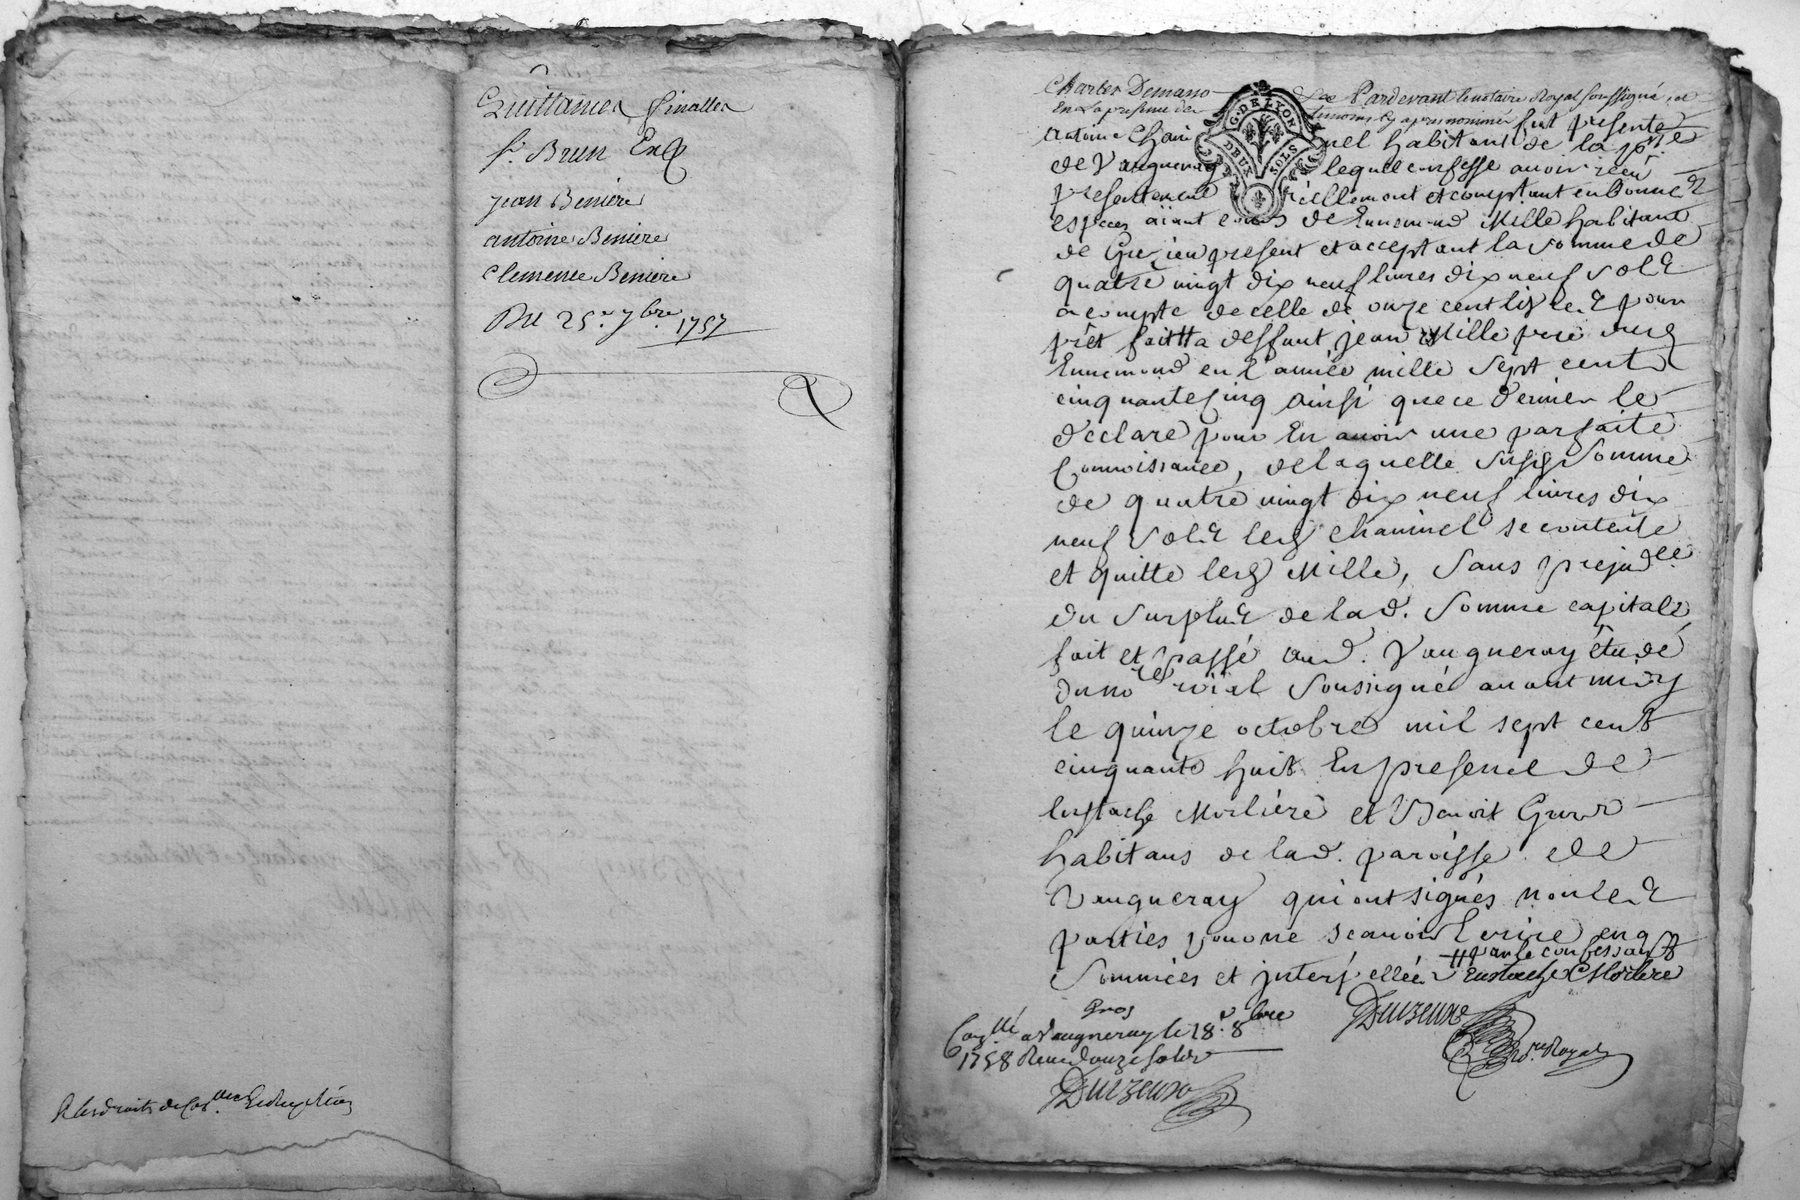 Quittances finalles
Sr. Brun
jean Beniere
antoine Beniere
Clemence Beniere
Du 25e. 7bre. 1757
G. DE LYON
DEUX SOLS
Pardevant le notaire Royal soussigné, et
En la presence des temoins cy apres nommés fut présent
antoine Chaninel habitant de la psse
de Vaugneray lequel confesse avoir reçu
présentement réellement et comptant en bonnes
espèces aiant cours de Ennemond Mille habitant
de Grezieu présent et acceptant la somme de
quatre vingt dix neuf livres dix neuf sols
a compte de celle de onze cent livres
prêt fait # a deffunt jean Mille père dud
Ennemond en l'année mille sept cent
cinquante cinq ainsi que ce dernier le
déclare pour En avoir une parfaite
Connoissance, de laquelle susd somme
de quatre vingt dix neuf livres dix
neuf sols led Chaninel se contente
et quitte led Mille, sans prejudce
du surplus de lad. somme capitale
fait et passé aud. Vaugneray étude
du nore royal soussigné avant midy
le quinze octobre mil sept cent
cinquante huit En présence de
Eustache Morlière et Benoit
habitans de lad. paroisse de
Vaugneray qui ont signés non les d
parties pour ne scavoir Ecrire enq
sommées et interpellées # par le confessant
Eustache Morliere
Conllé a Vaugneray le 18e. 8bre
1758 Reçu douze sols
nore. Royal